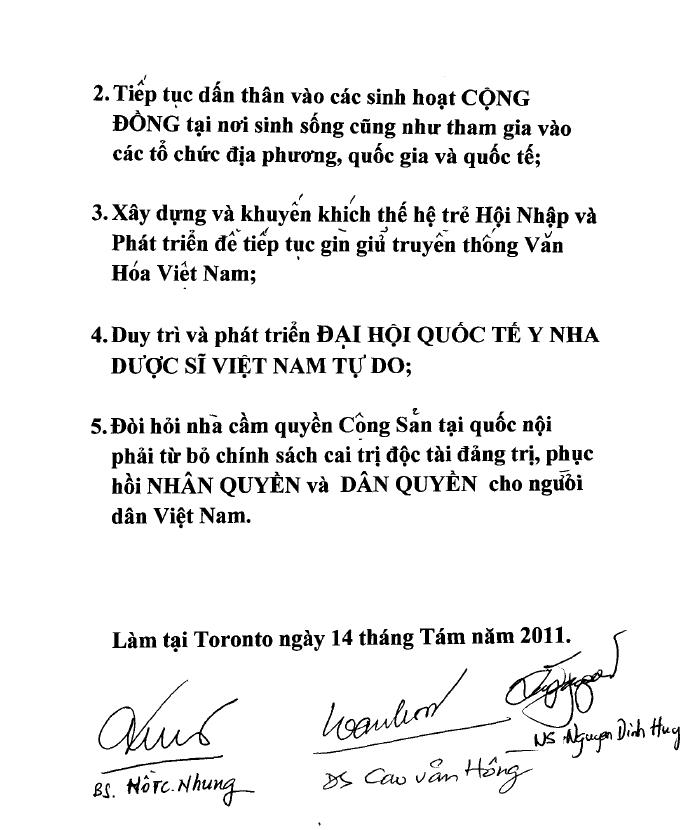 2. Tiếp tục dấn thân vào các sinh hoạt CỘNG
ĐỒNG tại nơi sinh sống cũng như tham gia vào
các tổ chức địa phương, quốc gia và quốc tế;
3. Xây dựng và khuyến khích thế hệ trẻ Hội Nhập và
Phát triển để tiếp tục gìn giữ truyền thống Văn
Hóa Việt Nam;
4. Duy trì và phát triển ĐẠI HỘI QUỐC TẾ Y NHA
DƯỢC SĨ VIỆT NAM TỰ DO;
5. Đòi hỏi nhà cầm quyền Công Sản tại quốc nội
phải từ bỏ chính sách cai trị độc tài đảng trị, phục
hồi NHÂN QUYỀN và DÂN QUYỀN cho người
dân Việt Nam.
Làm tại Toronto ngày 14 tháng Tám năm 2011.
BS. Hồ T.C. Nhung
DS Cao Văn Hồng
NS. Nguyen Dinh Huy